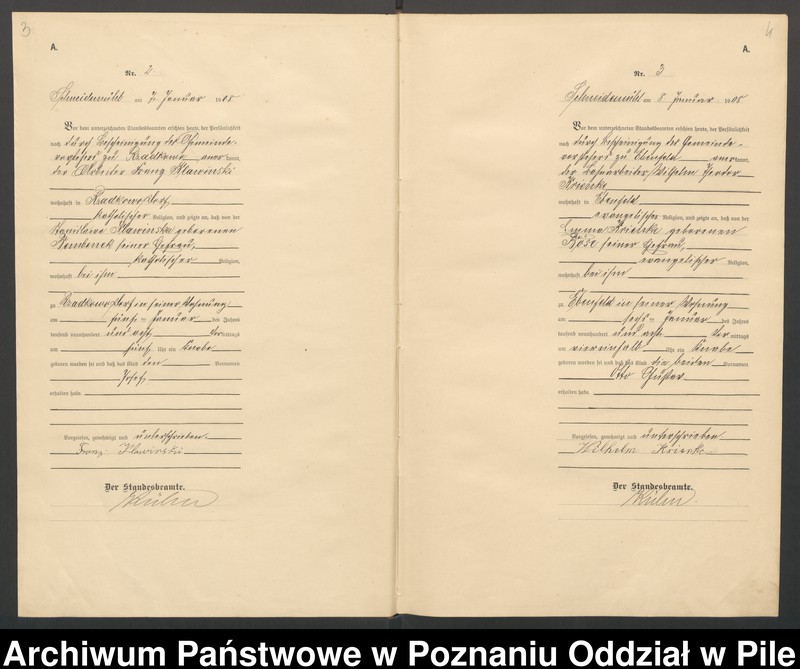 3
A.
Nr. 2
Schneidemühl am 7. Januar 1908
Vor dem unterzeichneten Standesbeamten erschien heute, der Persönlichkeit
nach durch Bescheinigung des Gemeinde-
vorstehers zu Kradkowo anerkannt,
der Arbeiter Franz
wohnhaft in Dorf,
katholischer Religion, und zeigte an, daß von der
Stanislawa geborenen
seiner Ehefrau,
katholischer Religion,
wohnhaft bei ihm
zu Dorf in seiner Wohnung
am fünf- Januar des Jahres
tausend neunhundert und acht Vormittags
um fünf Uhr ein Knabe
geboren worden sei und daß das Kind den Vornamen
Josef
erhalten habe
Vorgelesen, genehmigt und unterschrieben.
Franz
Der Standesbeamte.
Kühn
4
A.
Nr. 3
Schneidemühl am 8 Januar 1908
Vor dem unterzeichneten Standesbeamten erschien heute, der Persönlichkeit
nach durch Bescheinigung des Gemeinde-
vorstehers zu Ebenfeld anerkannt,
der Bahnarbeiter Wilhelm Theodor
Krienke
wohnhaft in Ebenfeld
evangelischer Religion, und zeigte an, daß von der
Emma Krienke geborenen
Böse seiner Ehefrau,
evangelischer Religion,
wohnhaft bei ihm
zu Ebenfeld in seiner Wohnung
am sechs- Januar des Jahres
tausend neunhundert und acht Vormittags
um viereinhalb Uhr ein Knabe
geboren worden sei und daß das Kind die beiden Vornamen
Otto Gustav
erhalten habe
Vorgelesen, genehmigt und unterschrieben.
Wilhelm Krienke
Der Standesbeamte.
Kühn.
Archiwum Państwowe w Poznaniu Oddział w Pile